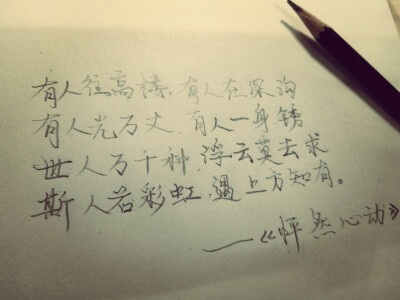 有人住高楼，有人在深沟
有人光万丈，有人一身锈
世人万千种，浮云莫去求
斯人若彩虹，遇上方知有。
——《怦然心动》